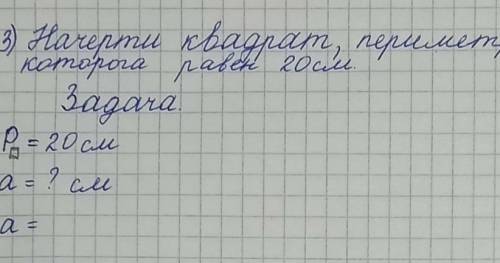 3) Начерти квадрат, периметр
которога равен 20см.
Задача.
P□ = 20 см
a = ? см
a =